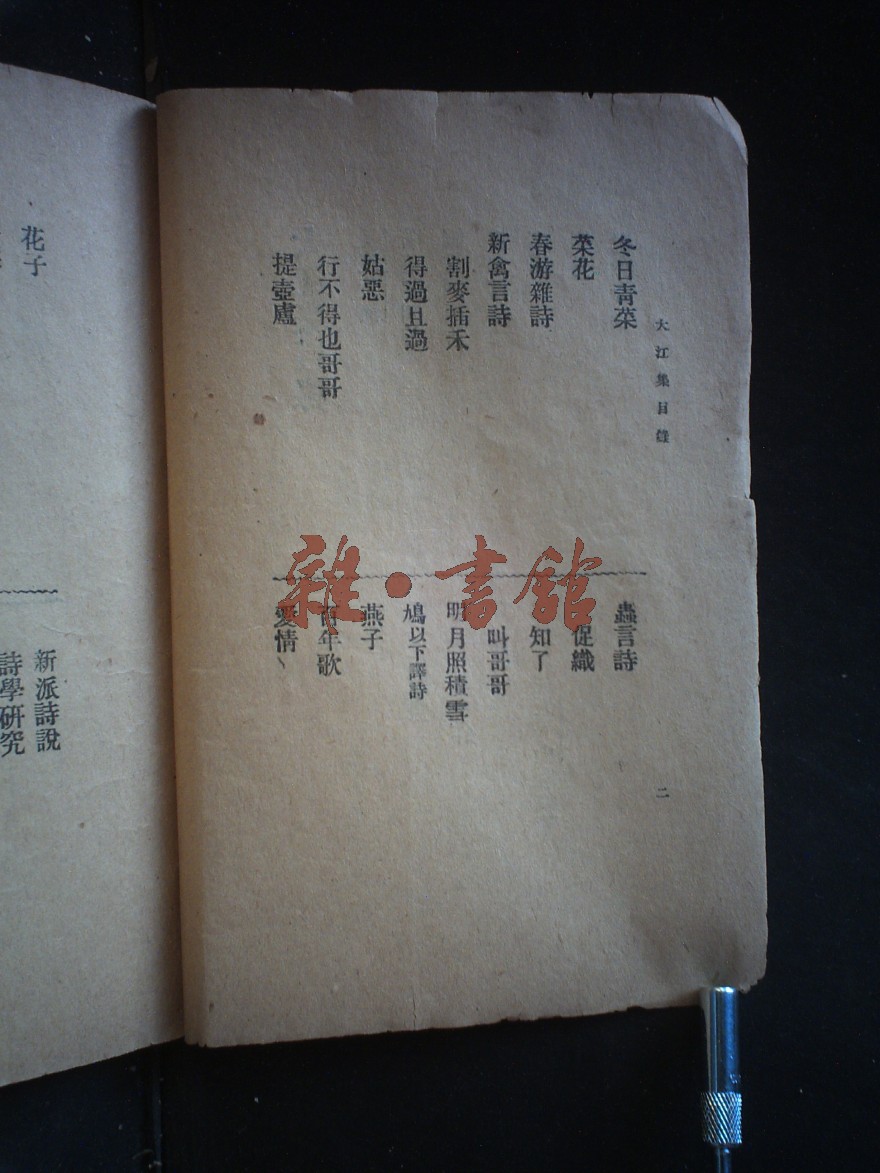 大江集目錄
冬日青菜
菜花
春游雜詩
新禽言詩
割麥插禾
得過且過
姑惡
行不得也哥哥
提壺盧
蟲言詩
促織
知了
叫哥哥
明月照積雪
鳩以下譯詩
燕子
百年歌
愛情
二
花子
新派詩說
詩學研究
雜·書館